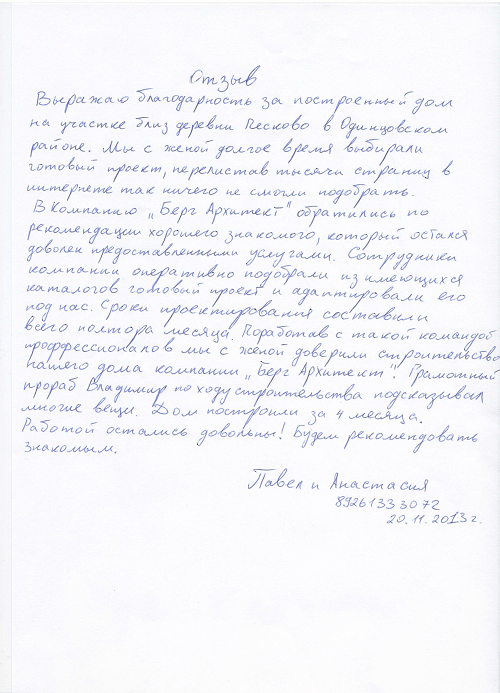 Отзыв
Выражаю благодарность за построенный дом
на участке близ деревни Песково в Одинцовском
районе. Мы с женой долгое время выбирали
готовый проект, перелистав тысячи страниц в
интернете так ничего не смогли подобрать.
В компанию „Берг Архитект" обратились по
рекомендации хорошего знакомого, который остался
доволен предоставленными услугами. Сотрудники
компании оперативно подобрали из имеющихся
каталогов готовый проект и адаптировали его
под нас. Сроки проектирования составили
всего полтора месяца. Поработав с такой командой
проффессионалов мы с женой доверили строительство
нашего дома компании „Берг Архитект". Грамотный
прораб Владимир по ходу строительства подсказывал
многие вещи. Дом построили за 4 месяца.
Работой остались довольны! Будем рекомендовать
знакомым.
Павел и Анастасия
89261333072
20.11.2013г.